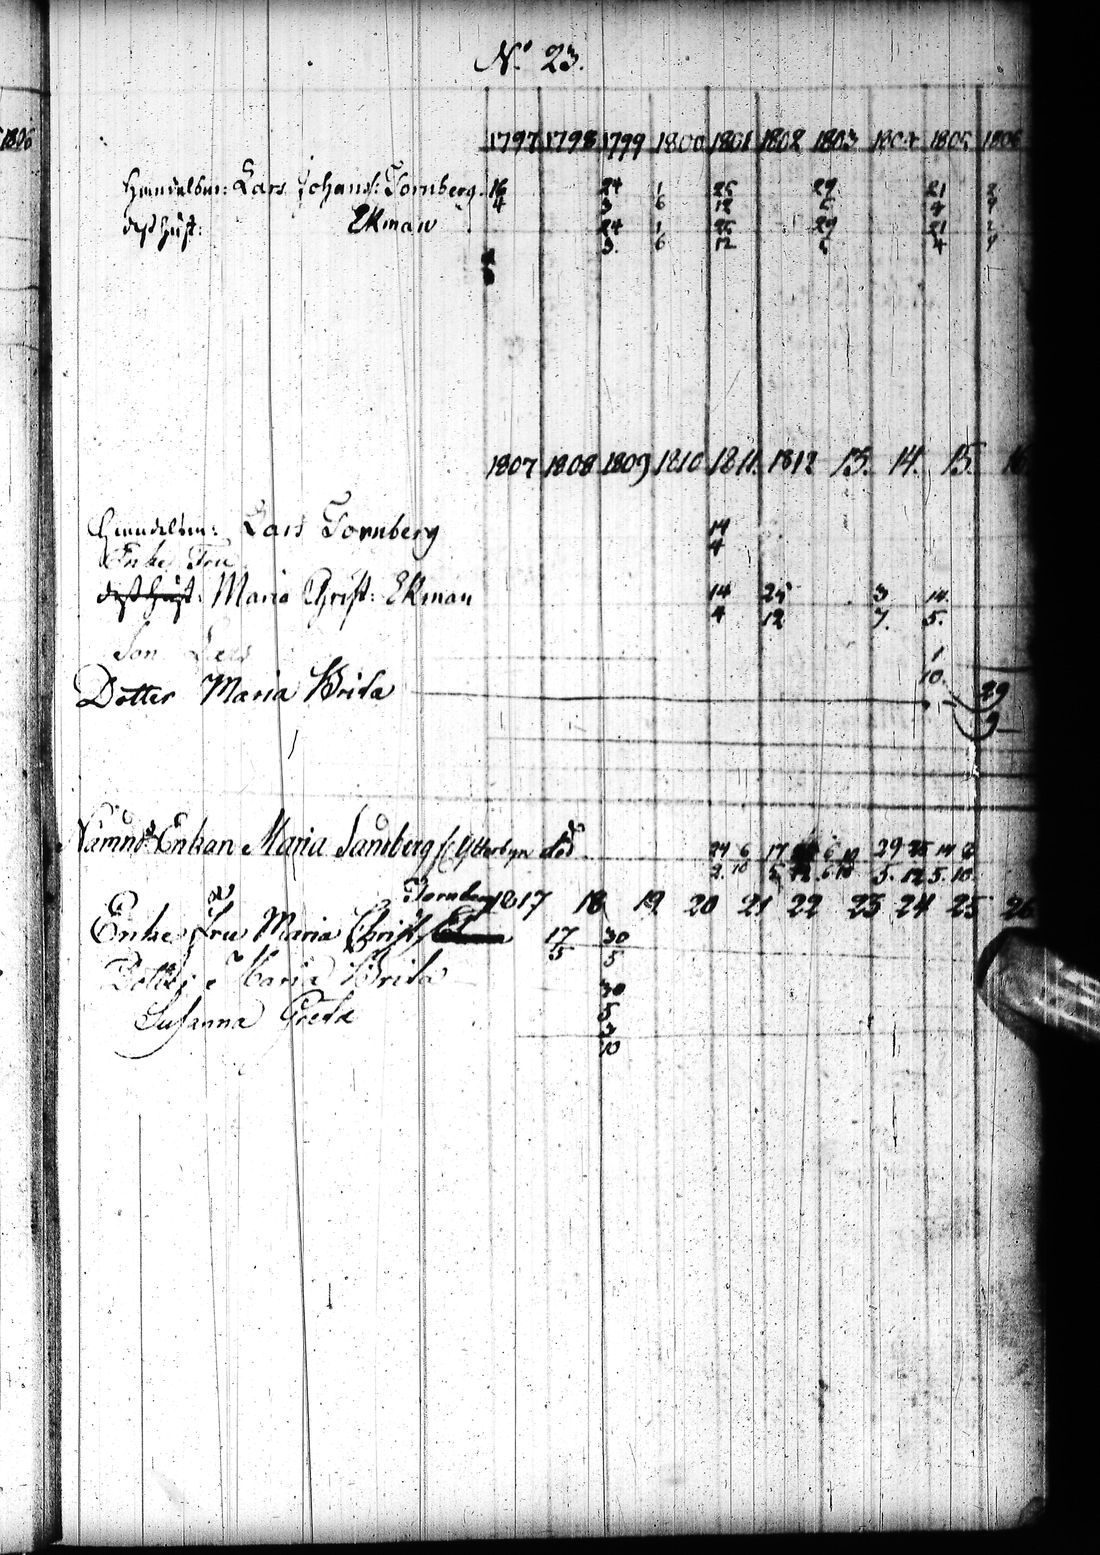 N:o 23.
1806
1797 1798 1799 1800 1801 1802 1803 1804 1805 1806
Handelsm: Lars Johans: Tornberg 16 24 1 25 29 21 2
4 3 6 12 5 4 4
dess hust: Ekman 24 1 25 29 21 2
3. 6 12 5 4 4
1807 1808 1809 1810 1811. 1812 13. 14. 15. 16
Handelsm: Lars Tornberg 14
4
Enke Fru
dess hust: Maria Christ: Ekman 14 25 3 14.
4 12 7. 5.
Son Lars 1
10.
Dotter Maria Brita 29
9
Nämnd: Enkan Maria Sandberg Ytterbyn död 24 6 17 6 10 29 25 14 6
10 5 12 6 10 5. 12 5. 10.
Tornberg 1817 18 19. 20 21 22 23 24 25 26
Enke Fru Maria Christ 17 30
5 5
Dotter Maria Brita 30
5
Susanna Greta 3
10